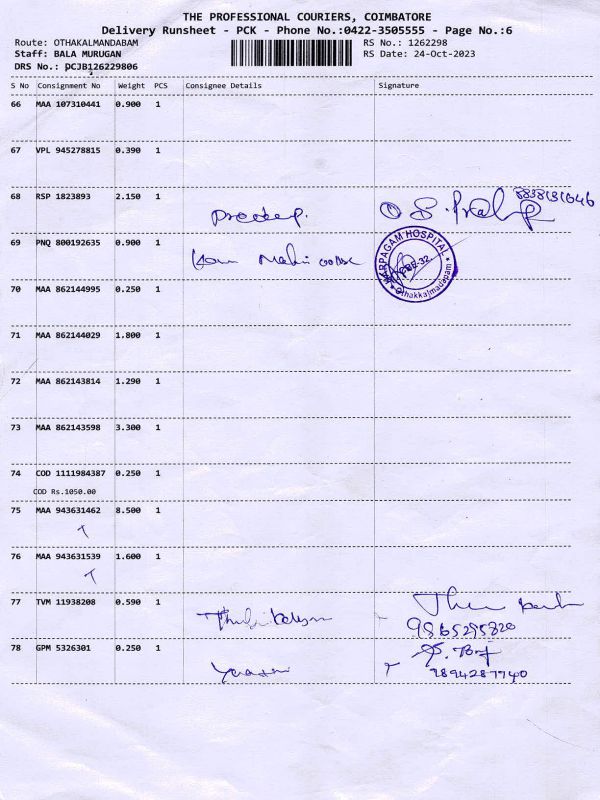 THE PROFESSIONAL COURIERS, COIMBATORE
Delivery Runsheet - PCK - Phone No.:0422-3505555 - Page No.:6
Route: OTHAKALMANDABAM RS No.: 1262298
Staff: BALA MURUGAN RS Date: 24-Oct-2023
DRS No.: PCJB126229806
S No Consignment No Weight PCS Consignee Details Signature
66 MAA 107310441 0.900 1
67 VPL 945278815 0.390 1
68 RSP 1823893 2.150 1
Pradeep.
69 PNQ 800192635 0.900 1
KARPAGAM HOSPITAL
Othakkalmadapam
70 MAA 862144995 0.250 1
71 MAA 862144029 1.800 1
72 MAA 862143814 1.290 1
73 MAA 862143598 3.300 1
74 COD 1111984387 0.250 1
COD Rs.1050.00
75 MAA 943631462 8.500 1
76 MAA 943631539 1.600 1
77 TVM 11938208 0.590 1
9865295820
78 GPM 5326301 0.250 1
9894287740